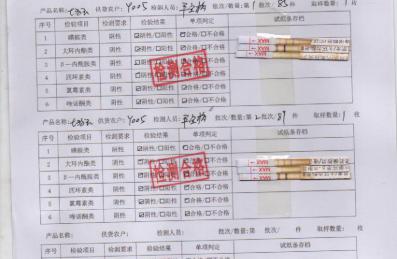 产品名称: 供货农户: Y005 检测人员: 批次/数量:第1批次/85件 取样数量:1枚
序号 检验项目 检测要求 检验结果 单项判定 试纸条存档
1 磺胺类 阴性 ☑阴性/□阳性 ☑合格/□不合格
2 大环内酯类 阴性 ☑阴性/□阳性 ☑合格/□不合格
3 β-内酰胺类 阴性 ☑阴性/□阳性 ☑合格/□不合格
4 四环素类 阴性 ☑阴性/□阳性 ☑合格/□不合格
5 氯霉素类 阴性 ☑阴性/□阳性 ☑合格/□不合格
6 喹诺酮类 阴性 ☑阴性/□阳性 ☑合格/□不合格
检测合格
MAX
MAX
产品名称: 供货农户: Y005 检测人员: 批次/数量:第2批次/89件 取样数量:1枚
序号 检验项目 检测要求 检验结果 单项判定 试纸条存档
1 磺胺类 阴性 ☑阴性/□阳性 ☑合格/□不合格
2 大环内酯类 阴性 ☑阴性/□阳性 ☑合格/□不合格
3 β-内酰胺类 阴性 ☑阴性/□阳性 ☑合格/□不合格
4 四环素类 阴性 ☑阴性/□阳性 ☑合格/□不合格
5 氯霉素类 阴性 ☑阴性/□阳性 ☑合格/□不合格
6 喹诺酮类 阴性 ☑阴性/□阳性 ☑合格/□不合格
检测合格
MAX
MAX
产品名称: 供货农户: 检测人员: 批次/数量:第 批次/ 件 取样数量: 枚
序号 检验项目 检测要求 检验结果 单项判定 试纸条存档